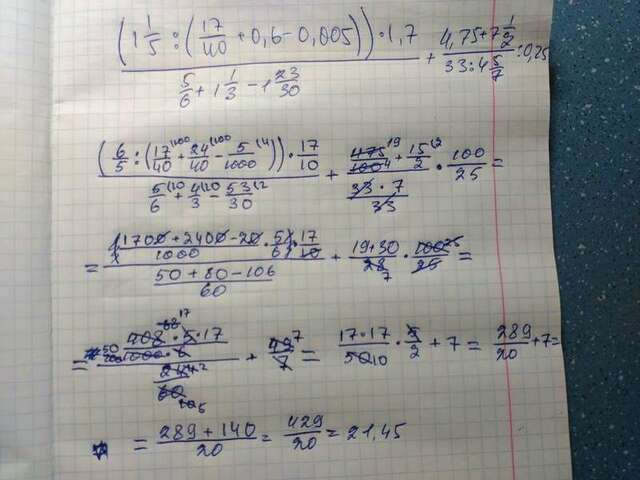 (1 1/5 : (17/40 + 0,6 - 0,005)) · 1,7 / (5/6 + 1 1/3 - 1 23/30) + (4,75 + 7 1/2) / (33 : 4 5/7) : 0,25
(6/5 : (17/40 + 24/40 - 5/1000)) · 17/10 / (5/6 + 4/3 - 53/30) + (475/100 + 15/2) / (33 · 7 / 33) · 100/25 =
= (1700 + 2400 - 20) / 1000 · 5/6 · 17/10 / ((50 + 80 - 106) / 60) + (19 + 30) / 28 · 100/25 =
= 408 · 5 · 17 / (1000 · 6) / (24/60) + 49/7 = 17 · 17 / 50 · 5/2 + 7 = 289/20 + 7 =
= (289 + 140) / 20 = 429/20 = 21,45